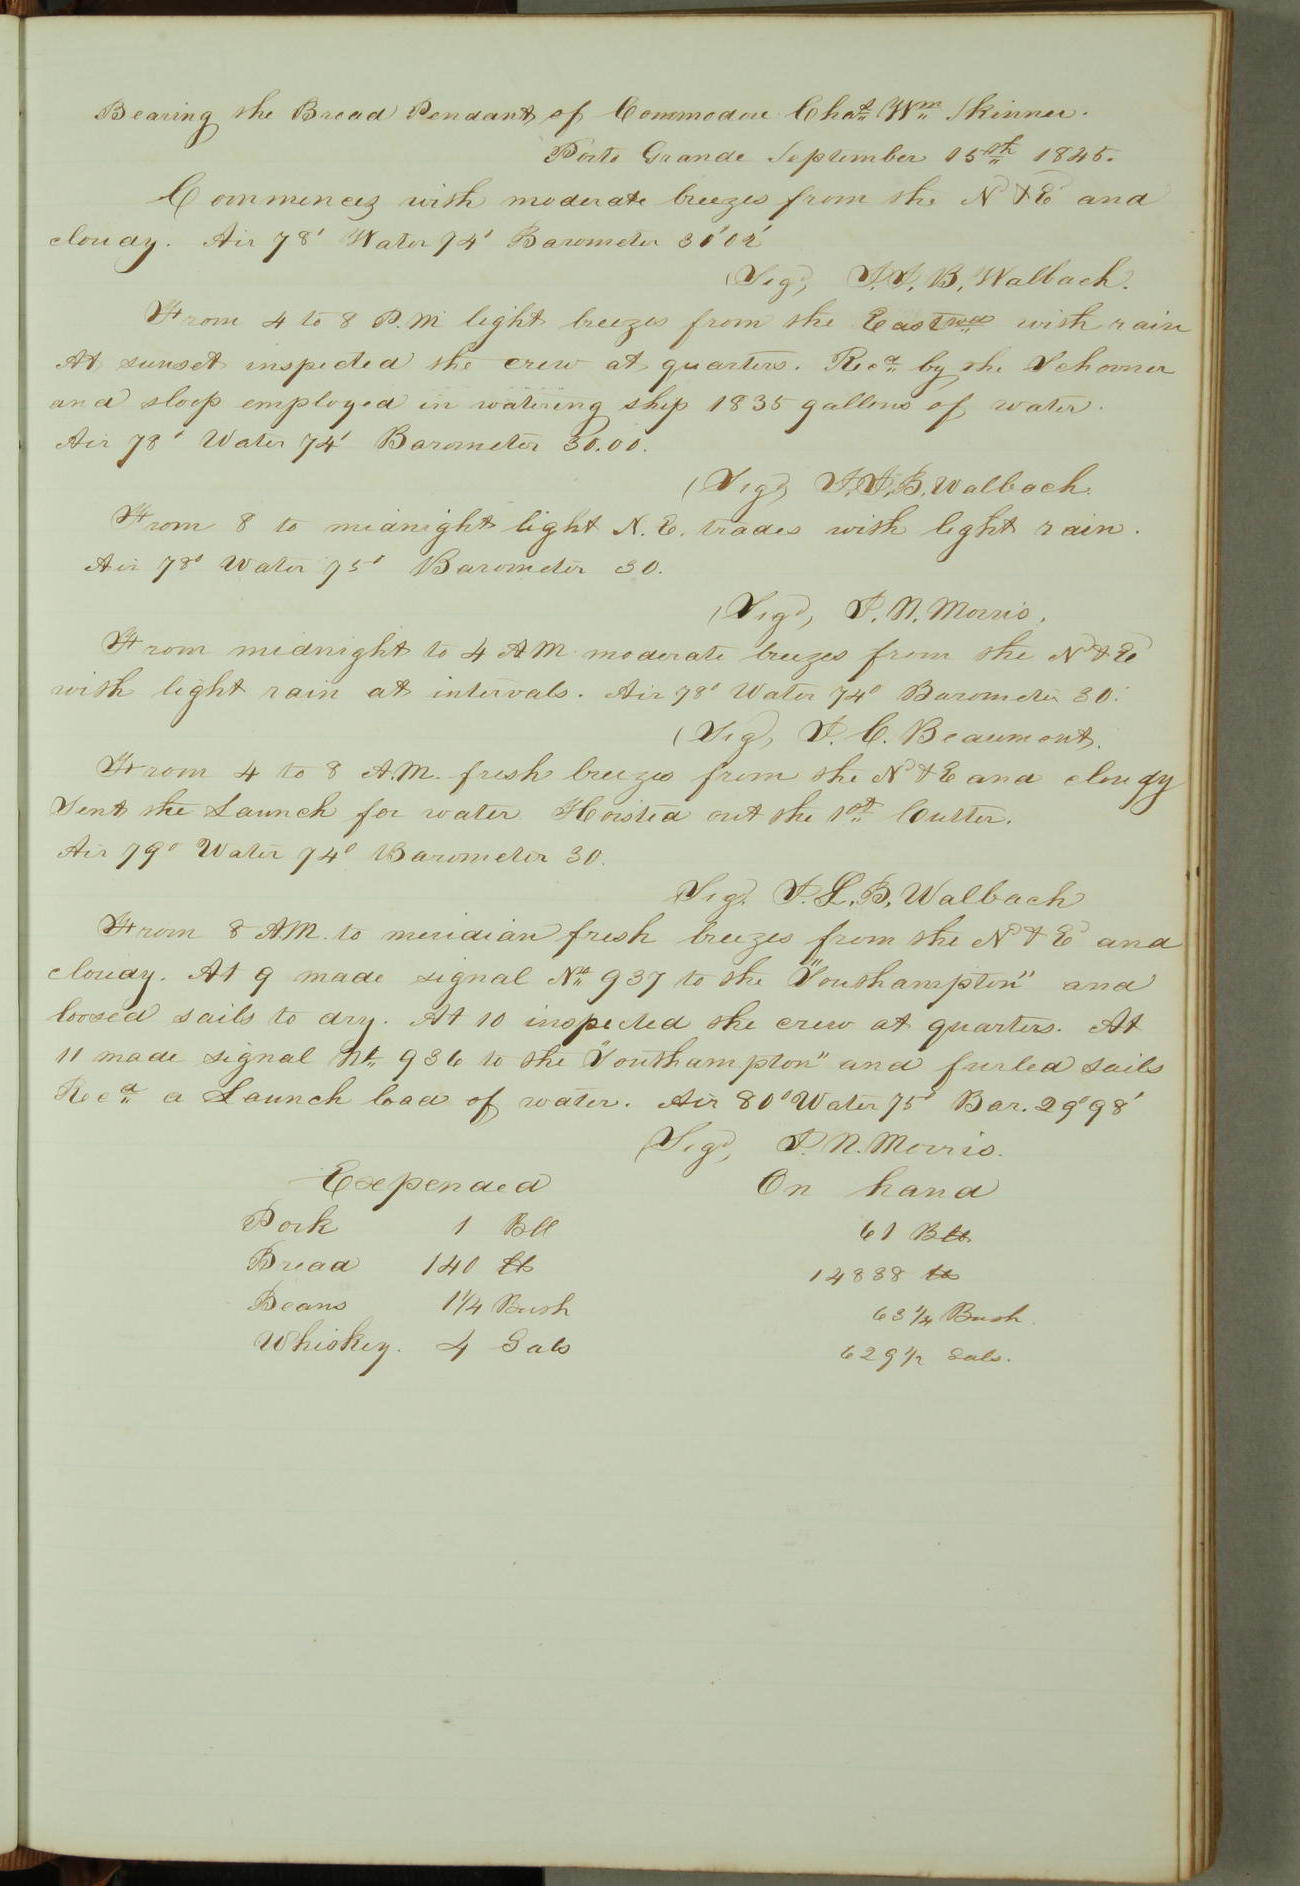 Bearing the Broad Pendant of Commodore Chas Wm Skinner.
Porto Grande September 15th 1845.
Commences with moderate breezes from the Nd & Ed and
cloudy. Air 78° Water 74° Barometer 30°02'
(Sigd, J.J.B. Walbach.
From 4 to 8 P.M. light breezes from the Eastwd with rain
At sunset inspected the crew at quarters. Recd by the Schooner
and sloop employed in watering ship 1835 gallons of water.
Air 78° Water 74° Barometer 30.00.
(Sigd, J.J.B. Walbach.
From 8 to midnight light N.E. trades with light rain.
Air 78° Water 75° Barometer 30.
(Sigd, I. N. Morris.
From midnight to 4 A M moderate breezes from the Nd & Ed
with light rain at intervals. Air 78° Water 74° Barometer 30.
(Sigd, J. C. Beaumont.
From 4 to 8 A.M. fresh breezes from the Nd & E and cloudy
Sent the Launch for water Hoisted out the 1st Cutter.
Air 79° Water 74° Barometer 30.
Sigd. J. L. B. Walbach
From 8 A.M. to meridian fresh breezes from the Nd & Ed and
cloudy. At 9 made signal No 937 to the "Southampton" and
loosed sails to dry. At 10 inspected the crew at quarters. At
11 made signal No 936 to the "Southampton" and furled sails
Recd a Launch load of water. Air 80° Water 75° Bar. 29°98'
(Sigd, I. N. Morris.
Expended On hand
Pork 1 Bbl 61 Bbls
Bread 140 lbs 14838 lbs
Beans 1 1/4 Bush 63 1/4 Bush.
Whiskey. 4 Gals 629 1/2 Gals.